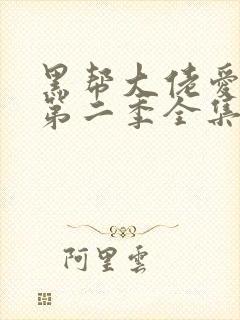 黑帮大佬爱
第二季全集
阿里雲